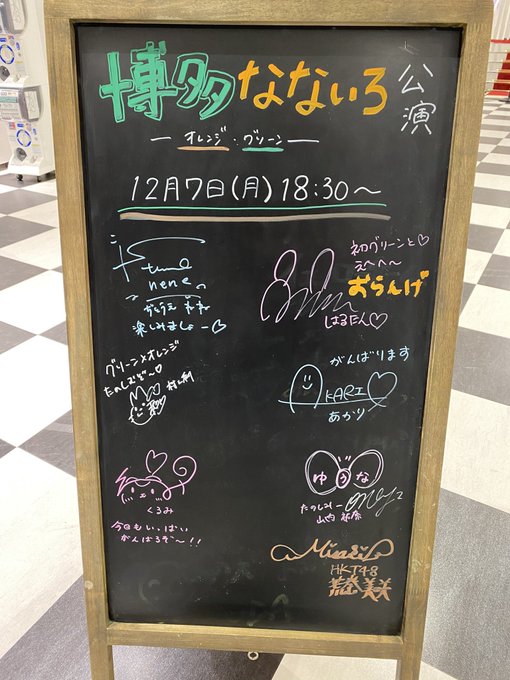 博多なないろ公演
— オレンジ・グリーン —
12月7日(月) 18:30〜
nene
楽しみましょー♡
初グリーンと♡
えへへ〜
おらんげ
はるたん♡
グリーン×オレンジ
たのしむぞ〜♡
がんばります
AKARI
あかり
くるみ
今日もいっぱい
がんばるぞ〜!!
ゆうな
たのしみー
山内祐奈
Misaki
HKT48